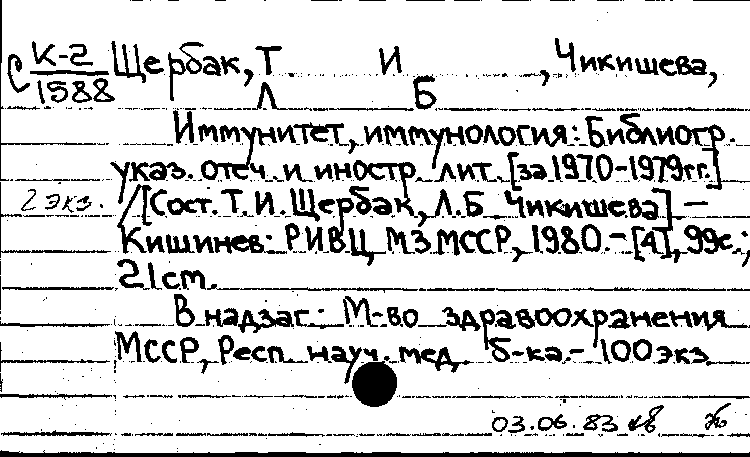 С К-2 Щербак, Т И , Чикишева,
1588 Л Б
Иммунитет, иммунология: Библиогр.
указ. отеч. и иностр. лит. [за 1970-1979гг.]
2 экз. /[Сост. Т. И. Щербак, Л. Б Чикишева]. —
Кишинев: РИВЦ МЗ МССР, 1980. - [4], 99с.;
21 cm.
В надзаг.: М-во здравоохранения
МССР, Респ. науч. мед. б-ка. - 100 экз.
03.06.83